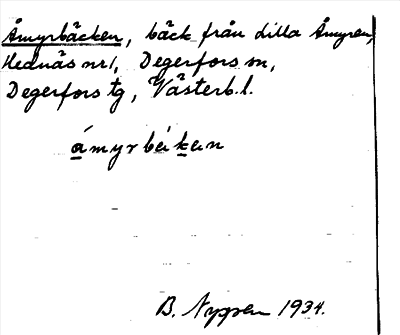 Åmyrbäcken, bäck från Lilla Åmyren,
Hednäs nr 1, Degerfors sn,
Degerfors tg, Västerb. l.
åmyrbékɛn
B. Nygren 1934.